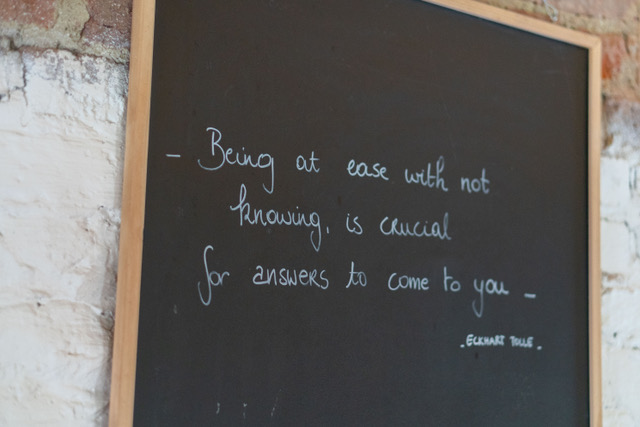 - Being at ease with not
knowing, is crucial
for answers to come to you -
- ECKHART TOLLE -